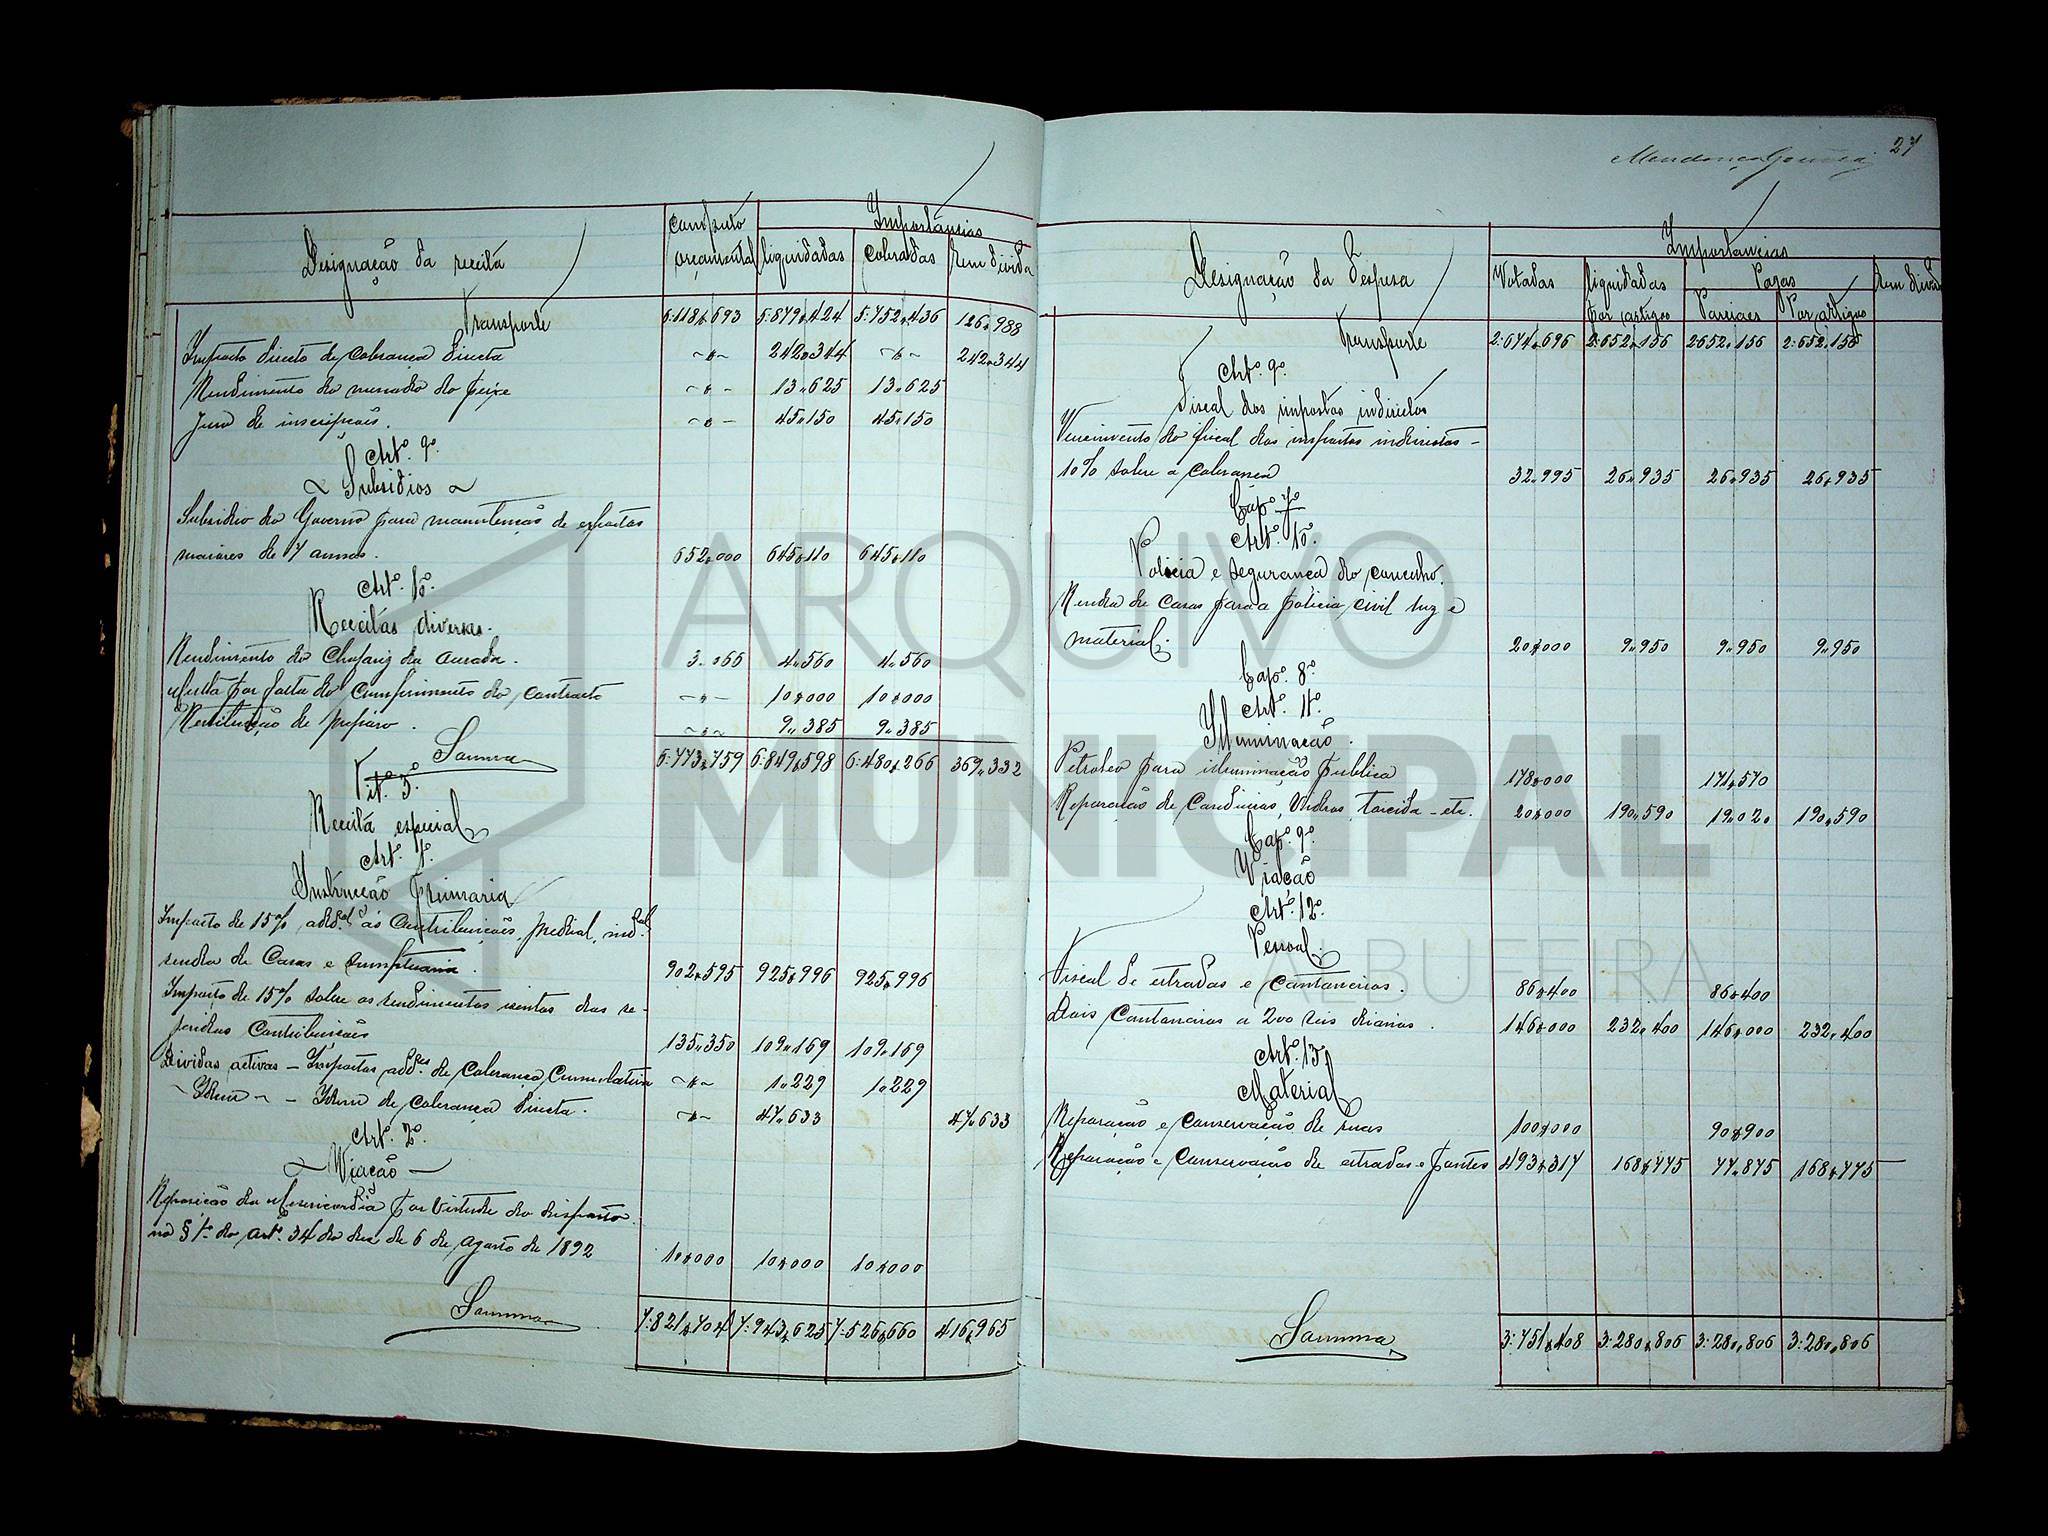 Designação da receita
Computo orçamental
Importancias
liquidadas
Cobradas
Em divida
Transporte 5:118$693 5:879$424 5:752$436 126,988
Imposto directo de cobrança directa -"- 242,344 -"- 242,344
Rendimento do mercado do peixe -"- 13,625 13,625
Juro de inscripções. -"- 45,150 45,150
Artº. 9º.
Subsidios
Subsidio do Governo para manutenção de expostos
maiores de 7 annos. 652,000 645,110 645,110
Artº. 10º.
Receitas diversas.
Rendimento do Chafariz da Ourada. 3,066 4,560 4,560
Multa por falta do cumprimento do contracto -"- 10$000 10$000
Restituição de preparo. -"- 9,385 9,385
Somma 6:773$759 6:849,598 6:480$266 369,332
Titº. 3º
Receita especial
Artº. 1º.
Instrucção primaria
Imposto de 15% add.al ás Contribuições, predial, ind.al
renda de Casas e sumptuaria. 902$595 925$996 925,996
Imposto de 15% sobre os rendimentos isentos das re-
feridas Contribuições 135,350 109,169 109,169
Dividas activas - Impostos add.es de Cobrança Cumulativa -"- 1,229 1,229
Idem - Idem de cobrança directa. -"- 47,633 47,633
Artº. 2º.
Viação
Reposição da Misericordia por virtude do disposto
no § 1º do artº. 34 do dec. de 6 de Agosto de 1892 10$000 10$000 10$000
Somma 7:821$704 7:943$625 7:526$660 416$965
27
Mendonça Gouvêa
Designação da despesa
Importancias
Votadas
liquidadas por artigos
Pagas
Parciaes
Por artigos
Em divida
Transporte 2:674,696 2:652,156 2:652,156 2:652,156
Artº. 9º.
Fiscal dos impostos indirectos
Vencimento do fiscal dos impostos indirectos -
10% sobre a cobrança 32,995 26,935 26,935 26,935
Cap.º 7º
Artº. 10º.
Policia e segurança do concelho.
Renda de Casas para a policia civil luz e
material. 20$000 9,950 9,950 9,950
Cap.º 8º
Artº. 11º.
Illuminação.
Petroleo para illuminação publica 178$000 171,570
Reparação de Candieiros, Vidros, torcida - etc. 20$000 190,590 19,020 190,590
Cap.º 9º.
Viação
Artº. 12º.
Pessoal.
Fiscal de estradas e cantoneiros. 86$400 86$400
Dois Cantoneiros a 200 reis diarios. 146$000 232,400 146$000 232,400
Artº. 13º
Material
Reparação e Conservação de ruas 100$000 90$900
Reparação e conservação de estradas e pontes 493$317 168$775 77,875 168$775
Somma 3:751$408 3:280$806 3:280,806 3:280,806
ARQUIVO
MUNICIPAL
ALBUFEIRA